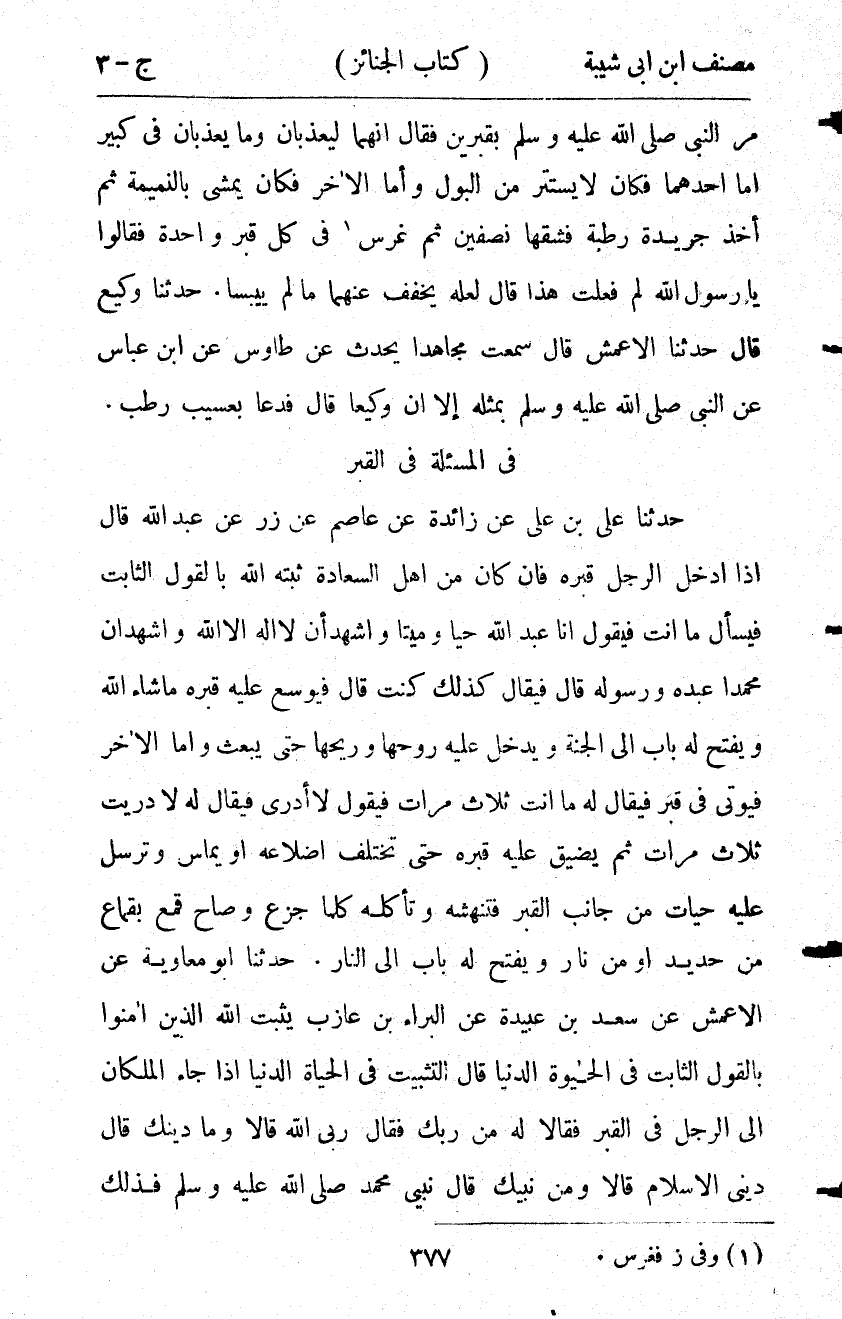 مصنف ابن ابى شيبة ( كتاب الجنائز ) ج - ٣
مر النبى صلى الله عليه و سلم بقبرين فقال انهما ليعذبان وما يعذبان فى كبير
اما احدهما فكان لايستتر من البول و أما الاٰخر فكان يمشى بالنميمة ثم
أخذ جريدة رطبة فشقها نصفين ثم غرس ١ فى كل قبر و احدة فقالوا
يا رسول الله لم فعلت هذا قال لعله يخفف عنهما مالم ييبسا . حدثنا وكيع
قال حدثنا الاعمش قال سمعت مجاهدا يحدث عن طاوس عن ابن عباس
عن النبى صلى الله عليه و سلم بمثله إلا ان وكيعا قال فدعا بعسيب رطب .
فى المسئلة فى القبر
حدثنا على بن على عن زائدة عن عاصم عن زر عن عبد الله قال
اذا ادخل الرجل قبره فان كان من اهل السعادة ثبته الله بالقول الثابت
فيسأل ما انت فيقول انا عبد الله حيا و ميتا و اشهد أن لا اله الا الله و اشهد ان
محمدا عبده و رسوله قال فيقال كذلك كنت قال فيوسع عليه قبره ماشاء الله
و يفتح له باب الى الجنة و يدخل عليه روحها و ريحها حتى يبعث و اما الاٰخر
فيوتى فى قبر فيقال له ما انت ثلاث مرات فيقول لا أدرى فيقال له لا دريت
ثلاث مرات ثم يضيق عليه قبره حتى تختلف اضلاعه او يماس و ترسل
عليه حيات من جانب القبر فتنهشه و تأكله كلما جزع و صاح قمع بقماع
من حديد او من نار و يفتح له باب الى النار . حدثنا ابو معاوية عن
الاعمش عن سعد بن عبيدة عن البراء بن عازب يثبت الله الذين اٰمنوا
بالقول الثابت فى الحيٰوة الدنيا قال التثبيت فى الحياة الدنيا اذا جاء الملكان
الى الرجل فى القبر فقالا له من ربك فقال ربى الله قالا و ما دينك قال
دينى الاسلام قالا و من نبيك قال نبيى محمد صلى الله عليه و سلم فذلك
(١) وفى ز فغرس .
٣٧٧